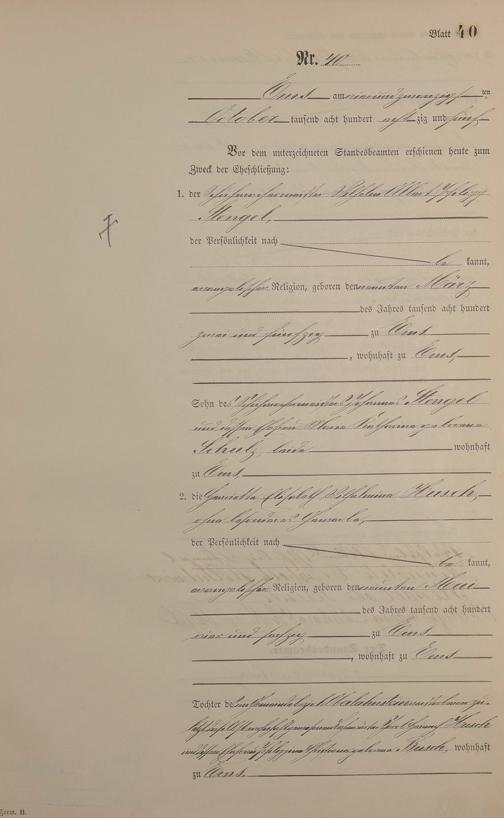 Blatt 40
Nr. 40
Ems am einundzwanzigsten
October tausend acht hundert achtzig und fünf
Vor dem unterzeichneten Standesbeamten erschienen heute zum
Zweck der Eheschließung:
1. der Schuhmachermeister Wilhelm Albert Philipp
Stengel,
der Persönlichkeit nach
be kannt,
evangelischer Religion, geboren den neunten März
des Jahres tausend acht hundert
zwei und fünfzig zu Ems
, wohnhaft zu Ems,
Sohn des Schuhmachermeisters Johannes Stengel
und dessen Ehefrau Maria Katharina geborene
Schulz, beide wohnhaft
zu Ems,
2. die Henriette Elisabeth Wilhelmine Husch,
ohne besonderes Gewerbe,
der Persönlichkeit nach
be kannt,
evangelischer Religion, geboren den neunten Mai
des Jahres tausend acht hundert
vier und sechzig zu Ems
, wohnhaft zu Ems
Tochter des
Husch
und dessen Ehefrau Philippina geborene Busch, wohnhaft
zu Ems.
Form. II.